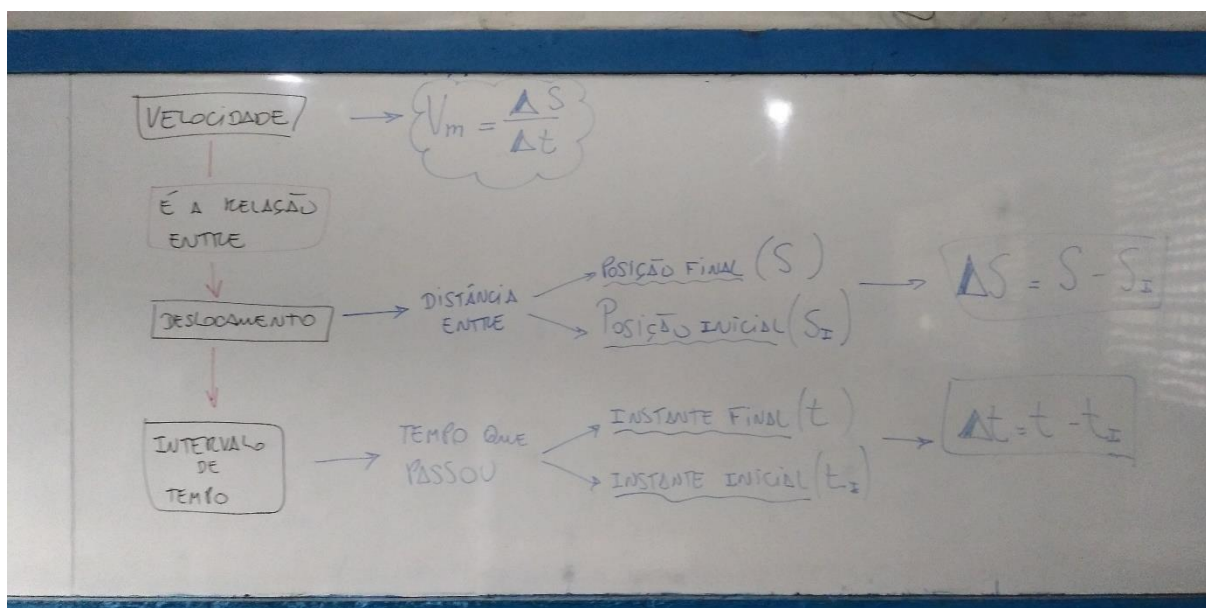 VELOCIDADE → Vm = ΔS/Δt
É A RELAÇÃO
ENTRE
DESLOCAMENTO → DISTÂNCIA
ENTRE
POSIÇÃO FINAL (S)
POSIÇÃO INICIAL (SI)
→ ΔS = S - SI
INTERVALO
DE
TEMPO
→ TEMPO QUE
PASSOU
INSTANTE FINAL (t)
INSTANTE INICIAL (tI)
→ Δt = t - tI